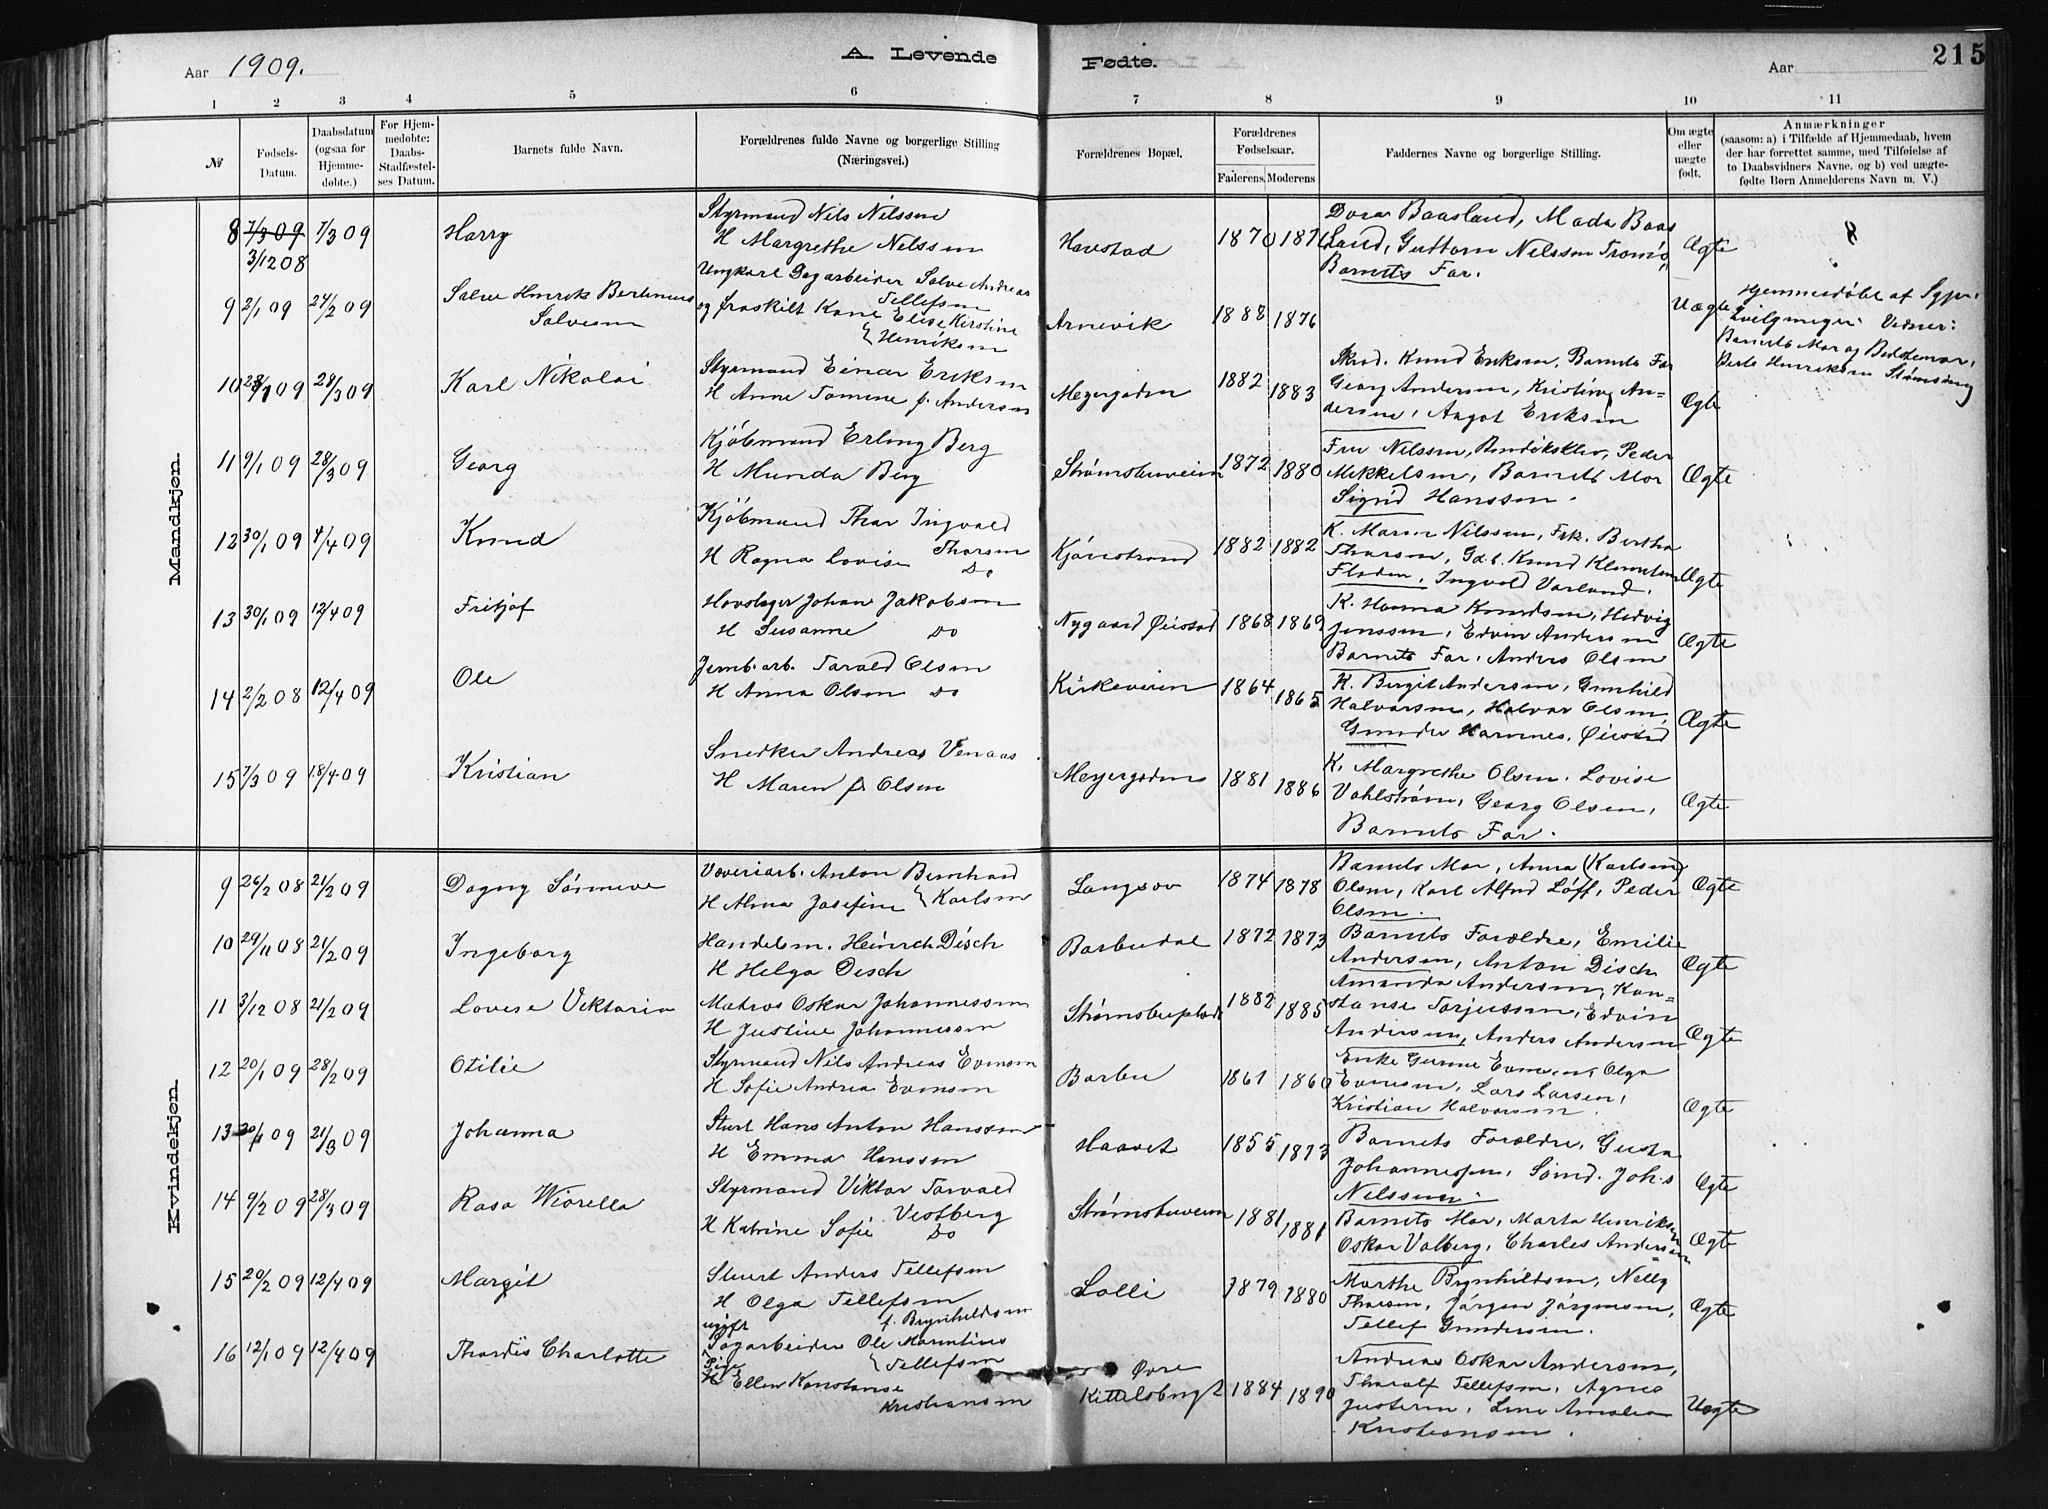 Aar 1909.
A. Levende Fødte.
Aar
215
1 2 3 4 5 6 7 8 9 10 11
№
Fødsels-Datum.
Daabsdatum (ogsaa for Hjemme-døbte.)
For Hjem-medøbte: Daabs-Stadfæstel-ses Datum.
Barnets fulde Navn.
Forældrenes fulde Navne og borgerlige Stilling (Næringsvei.)
Forældrenes Bopæl.
Forældrenes Fødselsaar.
Faderens. Moderens
Faddernes Navne og borgerlige Stilling.
Om ægte eller uægte født.
Anmærkninger
(saasom: a) i Tilfælde af Hjemmedaab, hvem
der har forrettet samme, med Tilføielse af
to Daabsvidners Navne. og b) ved uægte-
fødte Børn Anmelderens Navn m. V.)
Mandkjøn.
8 7/3 09 3/12 08 7/3 09 Harry
Styrmand Nils Nilssen
H Margrethe Nilssen
Havstad 1870 1871
Dora Baasland, Mada Baas
land, Guttorm Nilssen Tromø,
Barnets Far.
Ægte 8
9 2/1 09 24/2 09 Salve Henrik Bertinius
Salvesen
Ungkarl Dagarbeider Salve Andreas
Tellefsen
og fraskilt Kone Elise Kirstine
Henriksen
Arnevik 1888 1876
Uægte
Hjemmedøbt af
Vidner:
Barnets Mor og Bedstemor,
Berte Henriksen
10 09 28/3 09 Karl Nikolai
Styrmand Einar Eriksen
H Anne Tomine f. Andersen
Meyergaden 1882 1883
Knud Eriksen, Barnets Far
Georg Andersen, Kristine An-
dersen, Aagot Eriksen
Ægte
11 9/1 09 28/3 09 Georg
Kjøbmand Erling Berg
H Munda Berg
Strømsbuveien 1872 1880
Fru Nilssen, Bendiksklev, Peder
Mikkelsen, Barnets Mor
Sigrid Hanssen.
Ægte
12 30/1 09 4/4 09 Knud
Kjøbmand Thor Ingvald
Thorsen
H Ragna Lovise Do
1882 1882
K. Maren Nilssen, Frk. Bertha
Thorsen, Gdb. Knud
Floden, Ingvald Vorland.
Ægte
13 30/1 09 12/4 09 Fritjof
Hovslager Johan Jakobsen
H Susanne Do
Nygaard Øiestad 1868 1869
K. Hanna Knudsen, Hedvig
Jenssen, Edvin Andersen
Barnets Far, Anders Olsen
Ægte
14 2/2 08 12/4 09 Ole
Jernb.arb. Tarald Olsen
H Anna Olsen Do
Kirkeveien 1864 1865
K. Birgit Andersen, Gunhild
Halvorsen, Halvor Olsen,
Gunder Hammes, Øiestad
Ægte
15 7/3 09 18/4 09 Kristian
Snedker Andreas Venaas
H Maren f. Olsen
Meyergaden 1881 1886
K. Margrethe Olsen, Lovise
Vahlstrøm, Georg Olsen,
Barnets Far.
Ægte
Kvindekjøn.
9 26/2 08 21/2 09 Dagny Sørineve
Væveriarb. Anton Bernhard
H Alma Josefine Karlsen
Langsæv 1874 1878
Barnets Mor, Anna (Karlsen)
Olsen, Karl Alfred Løff, Peder
Olsen.
Ægte
10 29/11 08 21/2 09 Ingeborg
Handelsm. Heinrch Disch
H Helga Disch
Barbudal 1872 1873
Barnets Forældre, Emilie
Andersen, Anton Disch
Ægte
11 3/12 08 21/2 09 Lovise Viktoria
Matros Oskar Johannessen
H Justine Johannessen
Strømsbuplads 1882 1885
Amanda Andersen, Kon-
stanse Torjussen, Edvin
Andersen, Anders Andersen
Ægte
12 20/1 09 28/2 09 Otilie
Styrmand Nils Andreas Evensen
H Sofie Andrea Evensen
Barbu 1861 1860
Enke Gurine Evensen, Olga
Evensen, Lars Larsen,
Kristian Halvorsen.
Ægte
13 09 21/3 09 Johanna
Stuert Hans Anton Hanssen
H Emma Hanssen
Haavet 1855 1873
Barnets Forældre, Gusta
Johannessen, Sømd. Johs
Nilssen.
Ægte
14 9/2 09 28/3 09 Rasa Wiorella
Styrmand Viktor Torvald
Vestberg
H Katrine Sofie Do
Strømsbuveien 1881 1881
Barnets Mor, Marta Henriksen
Oskar Valberg, Charles Andersen
Ægte
15 20/2 09 12/4 09 Margit
Stuert Anders Tellefsen
H Olga Tellefsen
f. Brynhildsen
Lolli 1879 1880
Marthe Brynhildsen, Nelly
Thorsen, Jørgen Jørgensen,
Tellef Gundersen.
Ægte
16 12/1 09 12/4 09 Thordis Charlotte
ugift
Dagarbeider Ole Martinius
Tellefsen
Pige
Ellen Konstanse
Kristiansen
Øvre
Kittelsbugt 1884 1890
Andreas Oskar Andersen,
Tharalf Tellefsen, Agnes
Justesen, Line Amalia
Kristiansen.
Uægte